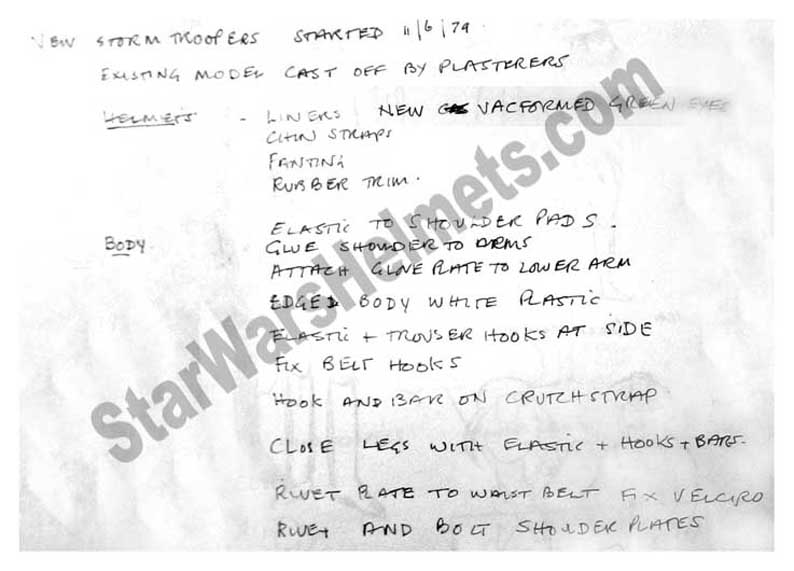 NEW STORM TROOPERS STARTED 11/6/79
EXISTING MODEL CAST OFF BY PLASTERERS
HELMETS - LINERS NEW VACFORMED GREEN EYES
CHIN STRAPS
PANTING
RUBBER TRIM.
ELASTIC TO SHOULDER PADS.
BODY. GLUE SHOULDER TO ARMS
ATTACH GLOVE PLATE TO LOWER ARM
EDGED BODY WHITE PLASTIC
ELASTIC + TROUSER HOOKS AT SIDE
FIX BELT HOOKS
HOOK AND BAR ON CRUTCH STRAP
CLOSE LEGS WITH ELASTIC + HOOKS + BARS.
RIVET PLATE TO WAIST BELT FIX VELCRO
RIVET AND BOLT SHOULDER PLATES
StarWarsHelmets.com